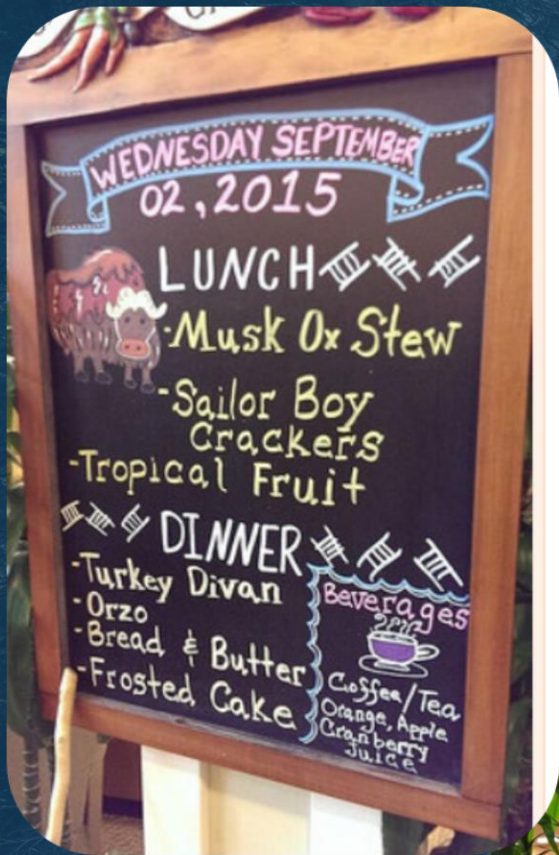 WEDNESDAY SEPTEMBER
02, 2015
LUNCH
-Musk Ox Stew
-Sailor Boy
Crackers
-Tropical Fruit
DINNER
-Turkey Divan
-Orzo
-Bread & Butter
-Frosted Cake
Beverages
Coffee/Tea
Orange, Apple
Cranberry
Juice